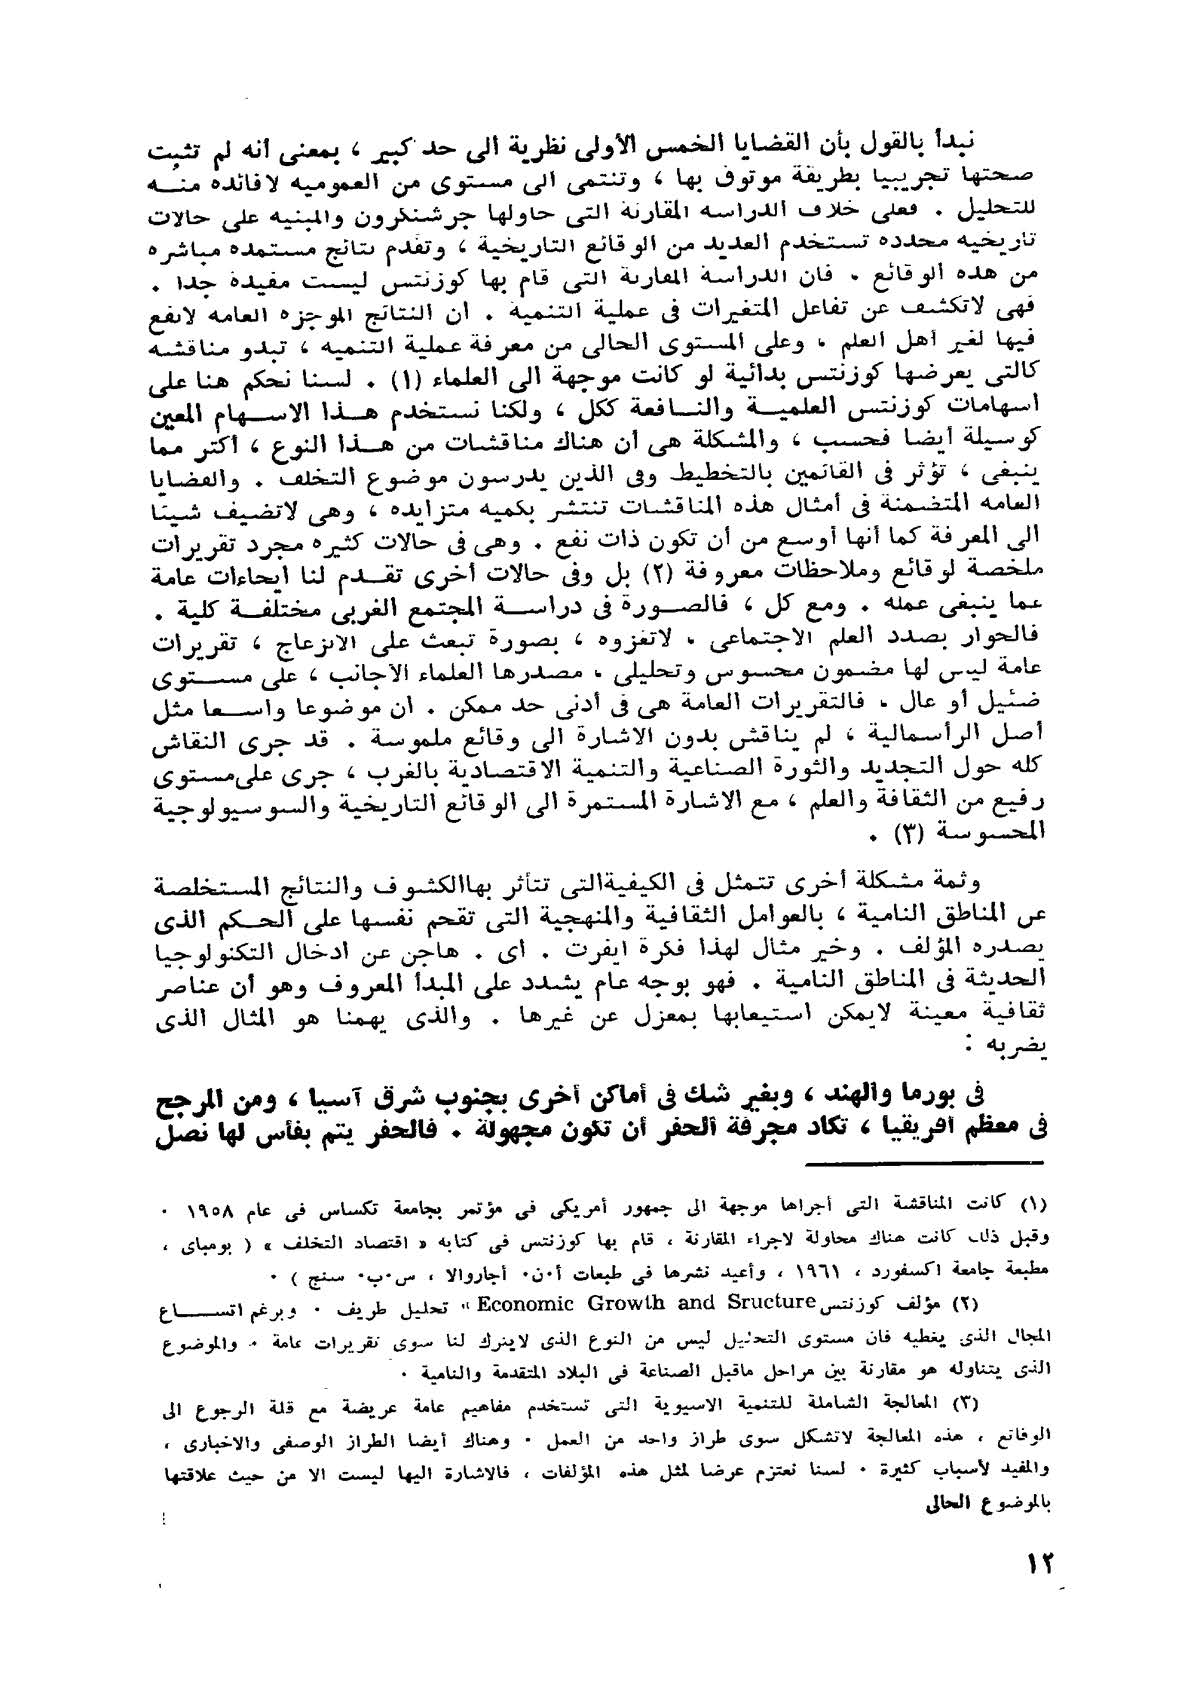 نبدأ بالقول بأن القضايا الخمس الأولى نظرية الى حد كبير ، بمعنى أنه لم تثبت
صحتها تجريبيا بطريقة موثوق بها ، وتنتمى الى مستوى من العموميه لافائده منه
للتحليل . فعلى خلاف الدراسه المقارنة التى حاولها جرشنكرون والمبنيه على حالات
تاريخيه محدده تستخدم العديد من الوقائع التاريخية ، وتقدم نتائج مستمده مباشره
من هذه الوقائع . فان الدراسة المقارنة التى قام بها كوزنتس ليست مفيدة جدا .
فهى لاتكشف عن تفاعل المتغيرات فى عملية التنمية . ان النتائج الموجزه العامه لانفع
فيها لغير أهل العلم . وعلى المستوى الحالى من معرفة عملية التنميه ، تبدو مناقشه
كالتى يعرضها كوزنتس بدائية لو كانت موجهة الى العلماء (١) . لسنا نحكم هنا على
اسهامات كوزنتس العلمية والنافعة ككل ، ولكنا نستخدم هذا الاسهام المعين
كوسيلة أيضا فحسب ، والمشكلة هى أن هناك مناقشات من هذا النوع ، أكثر مما
ينبغى ، تؤثر فى القائمين بالتخطيط وفى الذين يدرسون موضوع التخلف . والقضايا
العامه المتضمنة فى أمثال هذه المناقشات تنتشر بكميه متزايده ، وهى لاتضيف شيئا
الى المعرفة كما أنها أوسع من أن تكون ذات نفع . وهى فى حالات كثيره مجرد تقريرات
ملخصة لوقائع وملاحظات معروفة (٢) بل وفى حالات أخرى تقدم لنا ايحاءات عامة
عما ينبغى عمله . ومع كل ، فالصورة فى دراسة المجتمع الغربى مختلفة كلية .
فالحوار بصدد العلم الاجتماعى . لاتغزوه ، بصورة تبعث على الانزعاج ، تقريرات
عامة ليس لها مضمون محسوس وتحليلى . مصدرها العلماء الأجانب ، على مستوى
ضئيل أو عال . فالتقريرات العامة هى فى أدنى حد ممكن . ان موضوعا واسعا مثل
أصل الرأسمالية ، لم يناقش بدون الاشارة الى وقائع ملموسة . قد جرى النقاش
كله حول التجديد والثورة الصناعية والتنمية الاقتصادية بالغرب ، جرى على مستوى
رفيع من الثقافة والعلم ، مع الاشارة المستمرة الى الوقائع التاريخية والسوسيولوجية
المحسوسة (٣) .
وثمة مشكلة أخرى تتمثل فى الكيفية التى تتأثر بها الكشوف والنتائج المستخلصة
عن المناطق النامية ، بالعوامل الثقافية والمنهجية التى تقحم نفسها على الحكم الذى
يصدره المؤلف . وخير مثال لهذا فكرة ايفرت . اى . هاجن عن ادخال التكنولوجيا
الحديثة فى المناطق النامية . فهو بوجه عام يشدد على المبدأ المعروف وهو أن عناصر
ثقافية معينة لايمكن استيعابها بمعزل عن غيرها . والذى يهمنا هو المثال الذى
يضربه :
فى بورما والهند ، وبغير شك فى أماكن أخرى بجنوب شرق آسيا ، ومن المرجح
فى معظم افريقيا ، تكاد مجرفة الحفر أن تكون مجهولة . فالحفر يتم بفأس لها نصل
(١) كانت المناقشة التى أجراها موجهة الى جمهور أمريكى فى مؤتمر بجامعة تكساس فى عام ١٩٥٨ .
وقبل ذلك كانت هناك محاولة لاجراء المقارنة ، قام بها كوزنتس فى كتابه « اقتصاد التخلف » ( بومباى ،
مطبعة جامعة اكسفورد ، ١٩٦١ ، وأعيد نشرها فى طبعات أ.ن. أجاروالا ، س.ب. سنج ) .
(٢) مؤلف كوزنتس Economic Growth and Sructure" تحليل طريف . وبرغم اتساع
المجال الذى يغطيه فان مستوى التحليل ليس من النوع الذى لايترك لنا سوى تقريرات عامة . والموضوع
الذى يتناوله هو مقارنة بين مراحل ماقبل الصناعة فى البلاد المتقدمة والنامية .
(٣) المعالجة الشاملة للتنمية الاسيوية التى تستخدم مفاهيم عامة عريضة مع قلة الرجوع الى
الوقائع ، هذه المعالجة لاتشكل سوى طراز واحد من العمل . وهناك أيضا الطراز الوصفى والاخبارى ،
والمفيد لأسباب كثيرة . لسنا نعتزم عرضا لمثل هذه المؤلفات ، فالاشارة اليها ليست الا من حيث علاقتها
بالموضوع الحالى
١٢